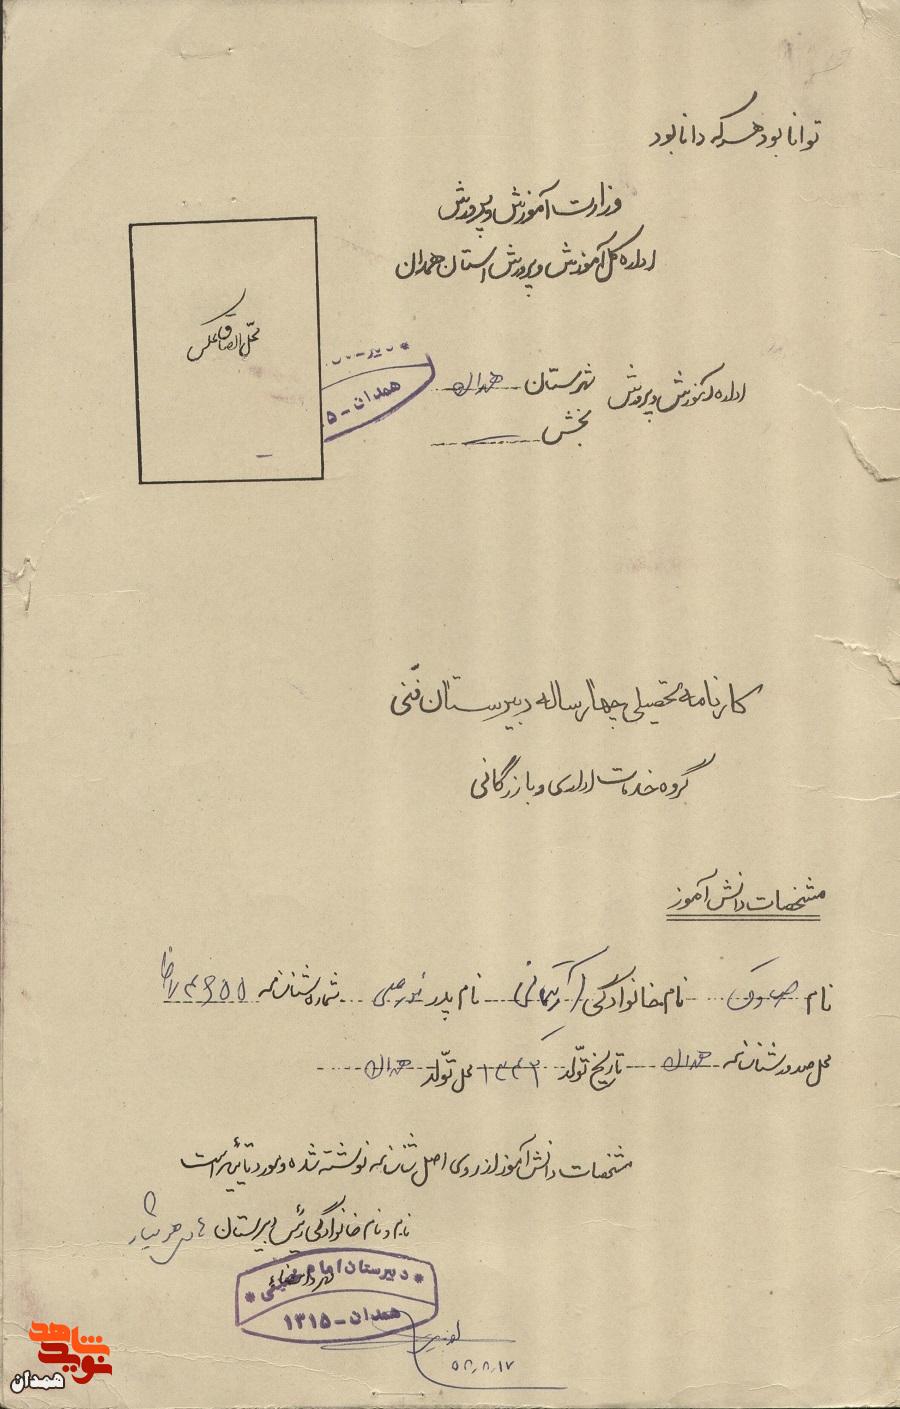 توانا بود هر که دانا بود
وزارت آموزش و پرورش
اداره کل آموزش و پرورش استان همدان
محل الصاق عکس
اداره آموزش و پرورش شهرستان همدان
بخش
همدان - ۱۵
کارنامه تحصیلی چهار ساله دبیرستان فنّی
گروه خدمات اداری و بازرگانی
مشخصات دانش آموز
نام نام خانوادگی نام پدر شماره شناسنامه
محل صدور شناسنامه همدان تاریخ تولّد ۱۳۴۲ محل تولّد همدان
مشخصات دانش آموز از روی اصل شناسنامه نوشته شده و مورد تأیید است
نام و نام خانوادگی رئیس دبیرستان
دبیرستان امام خمینی
همدان - ۱۳۱۵
۵۸٫۸٫۱۷
نوید شاهد
همدان